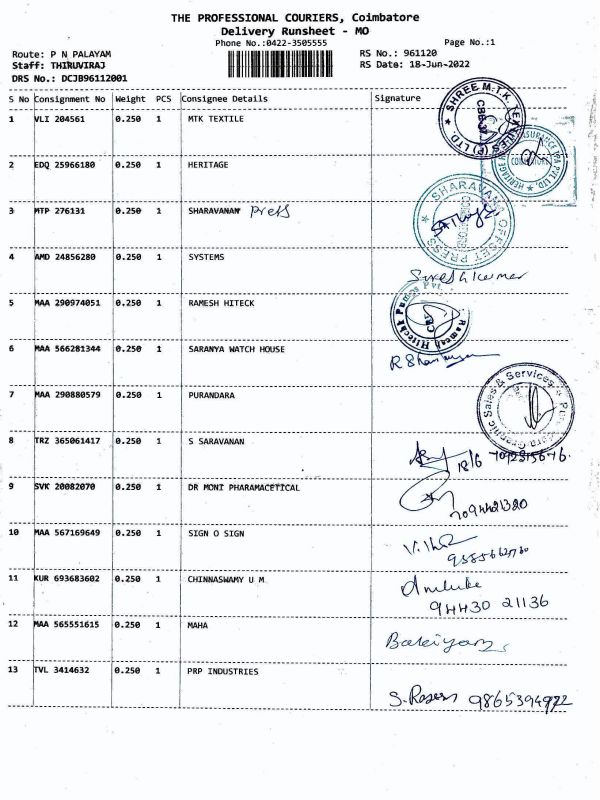 THE PROFESSIONAL COURIERS, Coimbatore
Delivery Runsheet - MO
Phone No.:0422-3505555 Page No.:1
Route: P N PALAYAM RS No.: 961120
Staff: THIRUVIRAJ RS Date: 18-Jun-2022
DRS No.: DCJB96112001
S No Consignment No Weight PCS Consignee Details Signature
1 VLI 204561 0.250 1 MTK TEXTILE
SHREE M.T.K. TEXTILES (P) LTD.
2 EDQ 25966180 0.250 1 HERITAGE
3 MTP 276131 0.250 1 SHARAVANAN Press
SHARAVANA OFFSET PRESS
4 AMD 24856280 0.250 1 SYSTEMS
Sureshkumar
5 MAA 290974051 0.250 1 RAMESH HITECK
Ramesh Hiteckt Pumps Pvt
6 MAA 566281344 0.250 1 SARANYA WATCH HOUSE
7 MAA 290880579 0.250 1 PURANDARA
Graphic Sales & Services
8 TRZ 365061417 0.250 1 S SARAVANAN
18/6
9 SVK 20082070 0.250 1 DR MONI PHARAMACETICAL
7094421320
10 MAA 567169649 0.250 1 SIGN O SIGN
11 KUR 693683602 0.250 1 CHINNASWAMY U M
94430 21136
12 MAA 565551615 0.250 1 MAHA
13 TVL 3414632 0.250 1 PRP INDUSTRIES